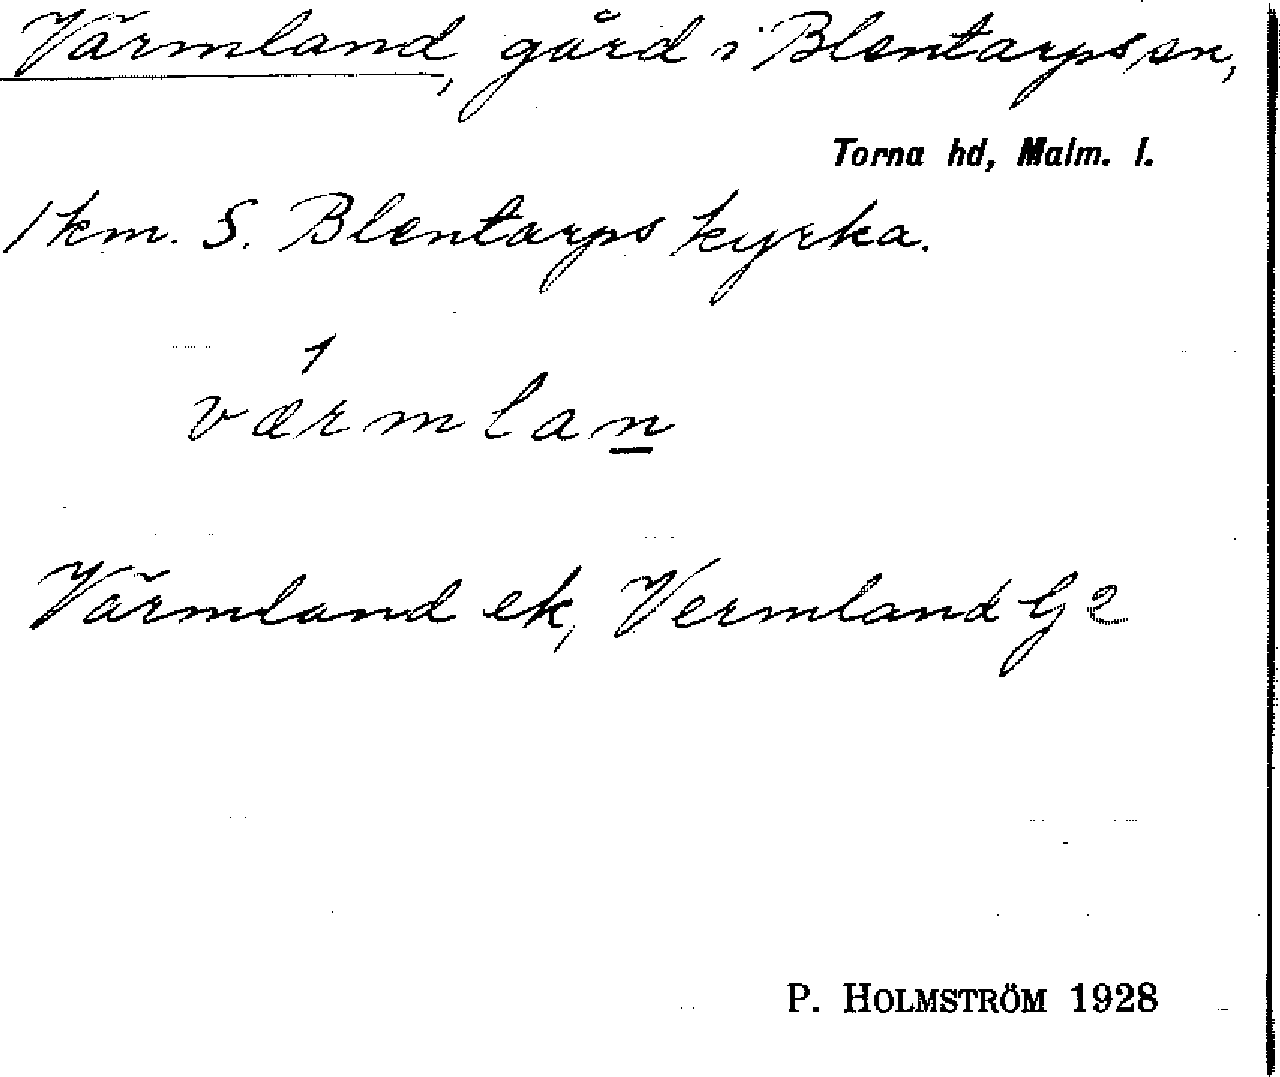 Värmland, gård i Blentarps sn,
Torna hd, Malm. l.
1 km. S. Blentarps kyrka.
værmlan
Värmland ek, Vermland G2
P. HOLMSTRÖM 1928